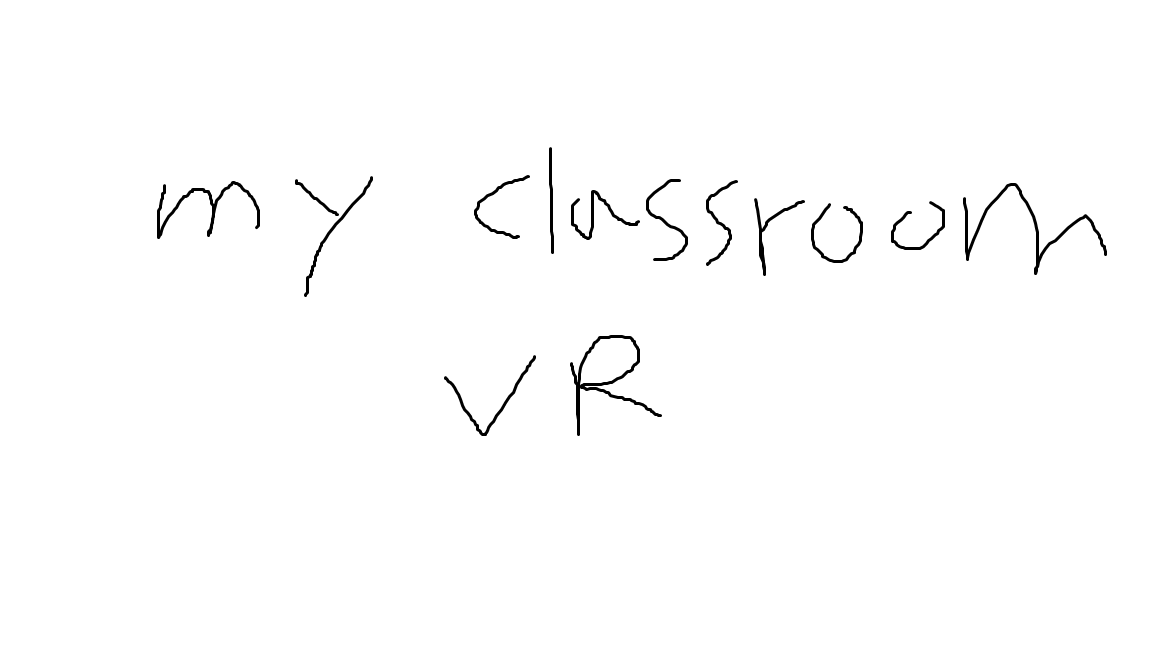 my classroom
VR